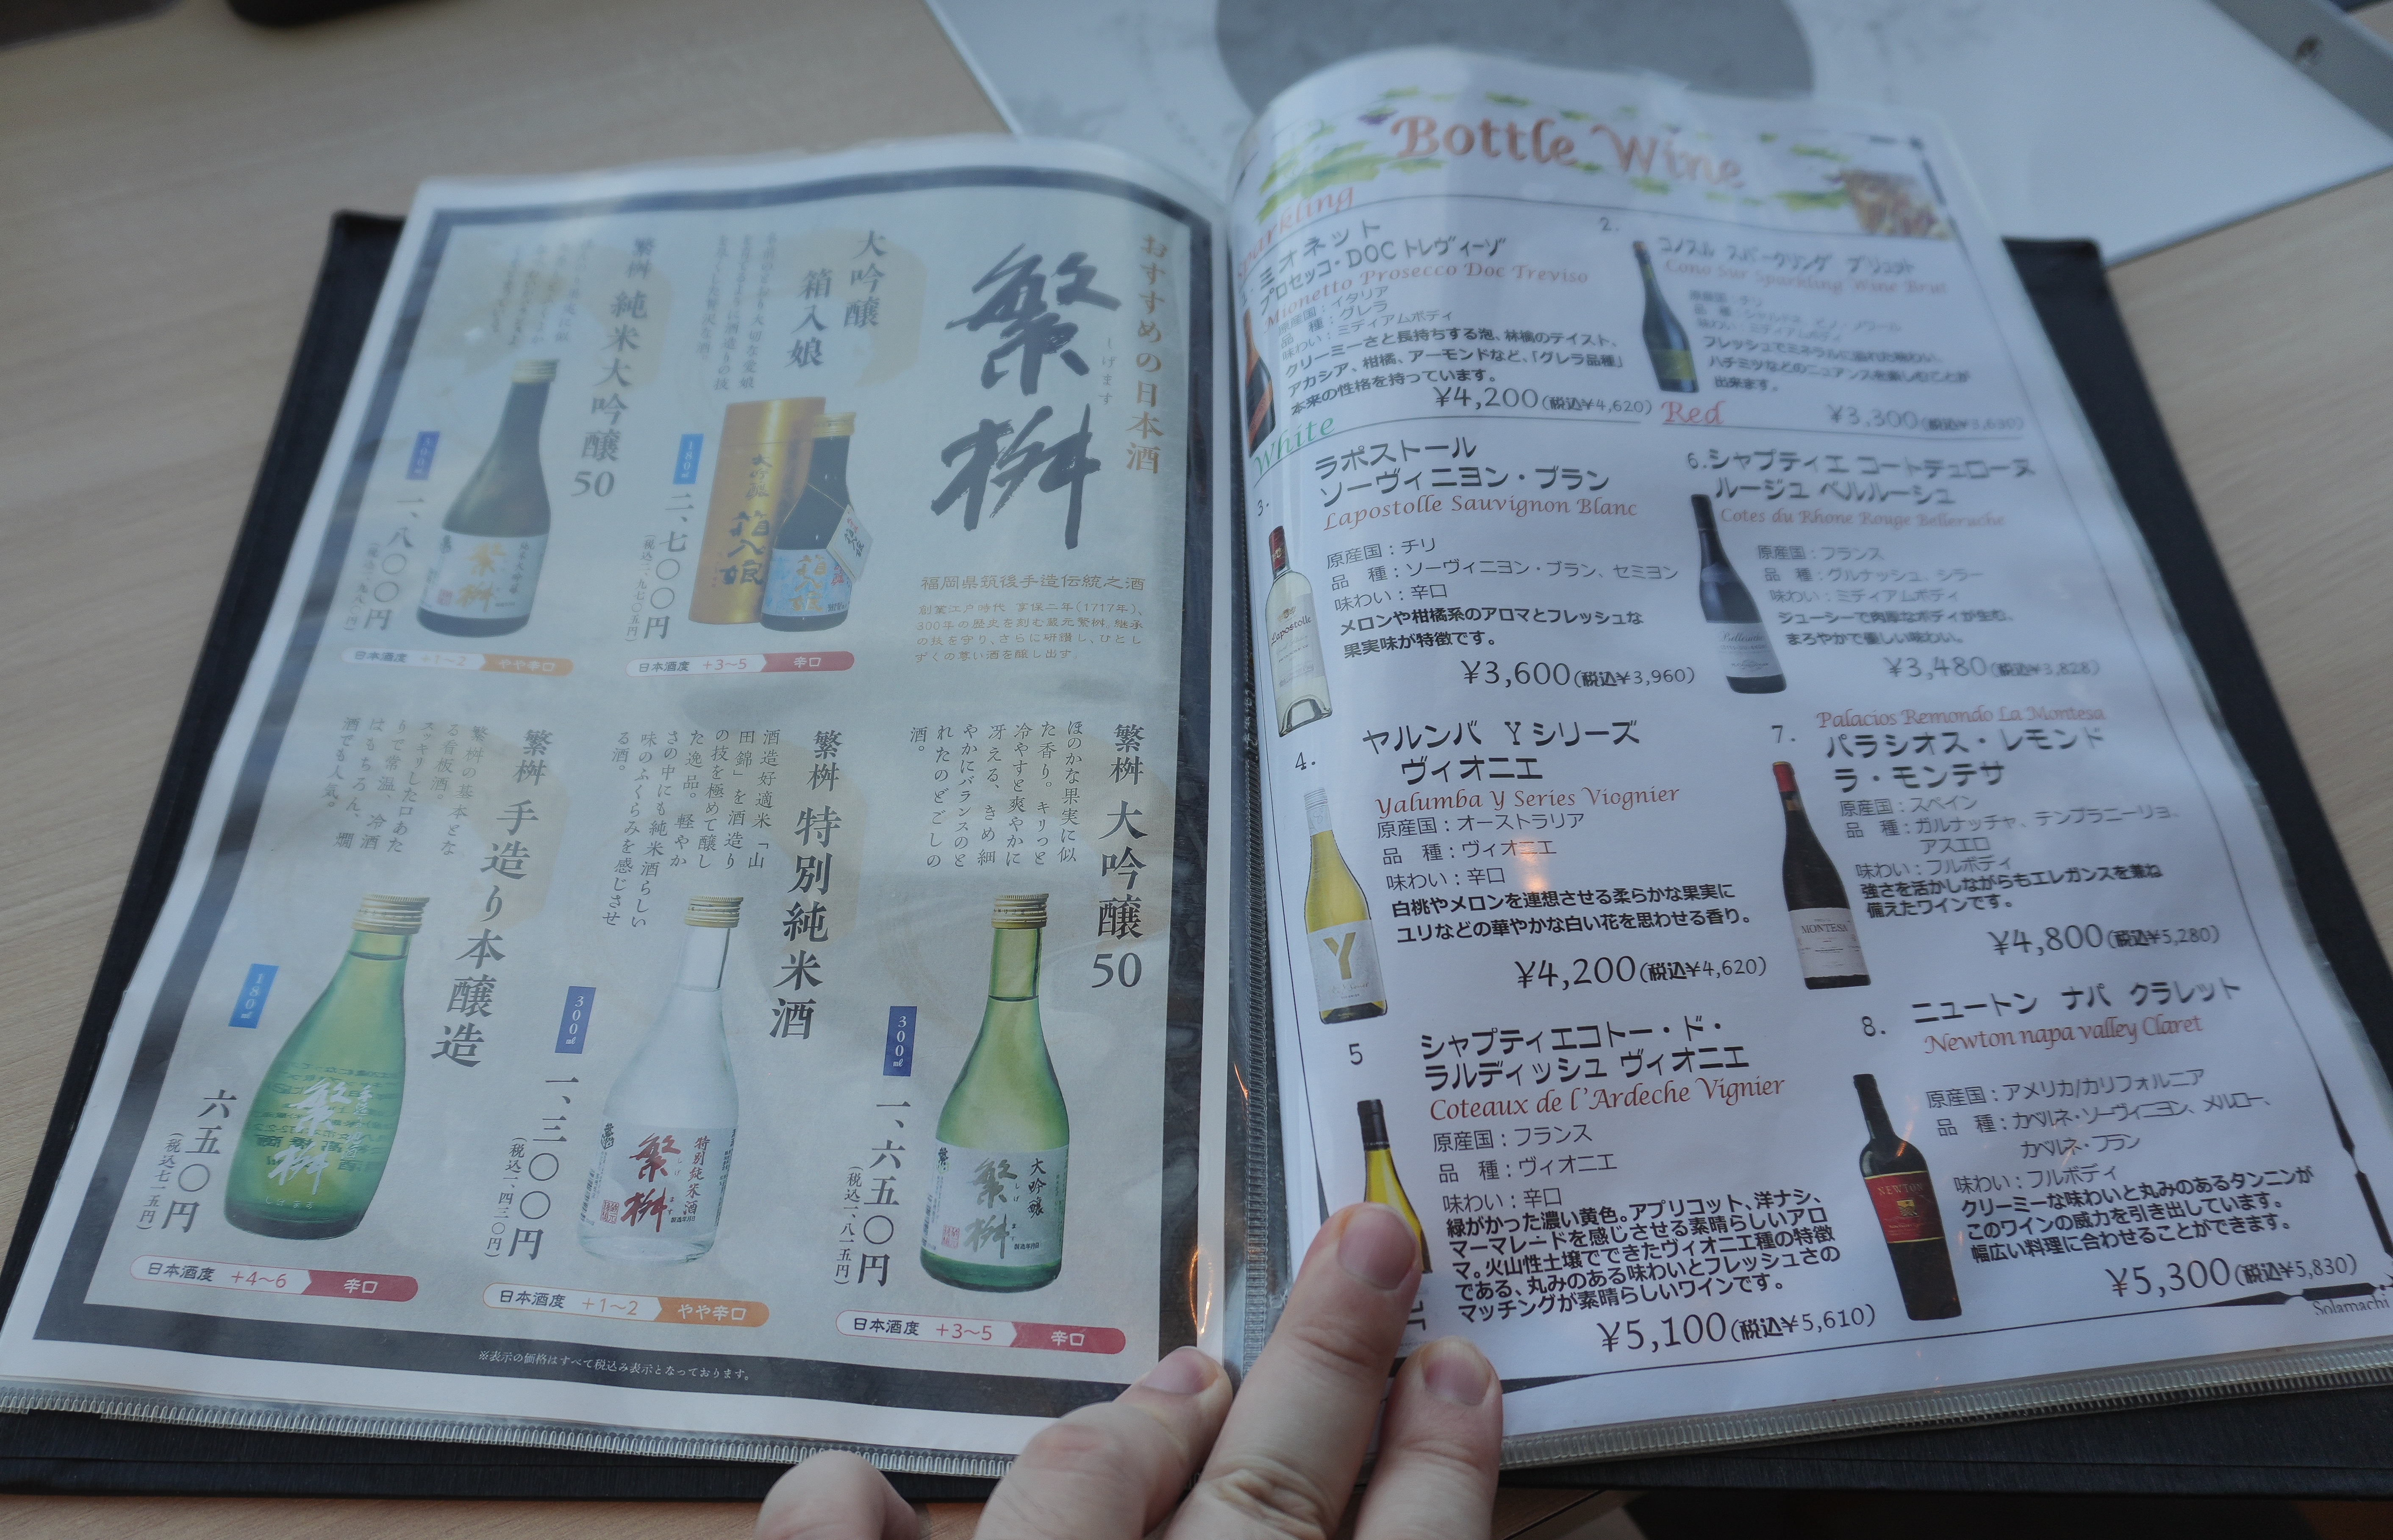 おすすめの日本酒
繁桝
しげます
福岡県筑後手造伝統之酒
創業江戸時代 享保二年(1717年)、
300年の歴史を刻む蔵元繁桝。継承
の技を守り、さらに研鑽し、ひとし
ずくの尊い酒を醸し出す。
大吟醸
箱入娘
180㎖
二、七〇〇円
(税込二、九七〇円)
日本酒度 +3~5 辛口
繁桝 純米大吟醸50
一、八〇〇円
(税込一、九八〇円)
日本酒度 +1~2 やや辛口
繁桝 大吟醸50
ほのかな果実に似
た香り。キリっと
冷やすと爽やかに
冴える、きめ細
やかにバランスのと
れたのどごしの
酒。
300㎖
一、六五〇円
(税込一、八一五円)
日本酒度 +3~5 辛口
繁桝 特別純米酒
酒造好適米「山
田錦」を酒造り
の技を極めて醸し
た逸品。軽やか
さの中にも純米酒らしい
味のふくらみを感じさせ
る酒。
300㎖
一、三〇〇円
(税込一、四三〇円)
日本酒度 +1~2 やや辛口
繁桝 手造り本醸造
繁桝の基本とな
る看板酒。
スッキリした口あた
りで常温、冷酒
はもちろん、燗
酒でも人気。
180㎖
六五〇円
(税込七一五円)
日本酒度 +4~6 辛口
※表示の価格はすべて税込み表示となっております。
Bottle Wine
Sparkling
ミオネット
プロセッコ・DOC トレヴィーゾ
Mionetto Prosecco Doc Treviso
原産国：イタリア
品　種：グレラ
味わい：ミディアムボディ
クリーミーさと長持ちする泡、林檎のテイスト、
アカシア、柑橘、アーモンドなど、「グレラ品種」
本来の性格を持っています。
¥4,200(税込¥4,620)
2.
コノスル スパークリング ブリュット
Cono Sur Sparkling Wine Brut
原産国：チリ
味わい：ミディアムボディ
フレッシュでミネラルに溢れた味わい、
ハチミツなどのニュアンスを楽しむことが
出来ます。
¥3,300(税込¥3,630)
White
3.
ラポストール
ソーヴィニヨン・ブラン
Lapostolle Sauvignon Blanc
原産国：チリ
品　種：ソーヴィニヨン・ブラン、セミヨン
味わい：辛口
メロンや柑橘系のアロマとフレッシュな
果実味が特徴です。
¥3,600(税込¥3,960)
4.
ヤルンバ Yシリーズ
ヴィオニエ
Yalumba Y Series Viognier
原産国：オーストラリア
品　種：ヴィオニエ
味わい：辛口
白桃やメロンを連想させる柔らかな果実に
ユリなどの華やかな白い花を思わせる香り。
¥4,200(税込¥4,620)
5
シャプティエコトー・ド・
ラルディッシュ ヴィオニエ
Coteaux de l'Ardeche Vignier
原産国：フランス
品　種：ヴィオニエ
味わい：辛口
緑がかった濃い黄色。アプリコット、洋ナシ、
マーマレードを感じさせる素晴らしいアロ
マ。火山性土壌でできたヴィオニエ種の特徴
である、丸みのある味わいとフレッシュさの
マッチングが素晴らしいワインです。
¥5,100(税込¥5,610)
Red
6.シャプティエ コートデュローヌ
ルージュ ベルルーシュ
Cotes du Rhone Rouge Belleruche
原産国：フランス
品　種：グルナッシュ、シラー
味わい：ミディアムボディ
ジューシーで肉厚なボディが生む、
まろやかで優しい味わい。
¥3,480(税込¥3,828)
7.
Palacios Remondo La Montesa
パラシオス・レモンド
ラ・モンテサ
原産国：スペイン
品　種：ガルナッチャ、テンプラニーリョ、
アスエロ
味わい：フルボディ
強さを活かしながらもエレガンスを兼ね
備えたワインです。
¥4,800(税込¥5,280)
8.
ニュートン ナパ クラレット
Newton napa valley Claret
原産国：アメリカ/カリフォルニア
品　種：カベルネ・ソーヴィニヨン、メルロー、
カベルネ・フラン
味わい：フルボディ
クリーミーな味わいと丸みのあるタンニンが
このワインの威力を引き出しています。
幅広い料理に合わせることができます。
¥5,300(税込¥5,830)
Solamachi